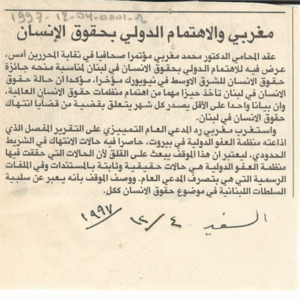 1997-12-04-0001-2
مغربي والاهتمام الدولي بحقوق الإنسان
عقد المحامي الدكتور محمد مغربي مؤتمرا صحافيا في نقابة المحررين أمس،
عرض فيه للاهتمام الدولي بحقوق الإنسان في لبنان لمناسبة منحه جائزة
حقوق الإنسان للشرق الأوسط في نيويورك مؤخرا، مؤكدا أن حالة حقوق
الإنسان في لبنان تأخذ حيزا مهما من اهتمام منظمات حقوق الإنسان العالمية،
وإن بيانا واحدا على الأقل يصدر كل شهر يتعلق بقضية من قضايا انتهاك
حقوق الإنسان في لبنان.
واستغرب مغربي رد المدعي العام التمييزي على التقرير المفصل الذي
اذاعته منظمة العفو الدولية في بيروت، حاصرا فيه حالات الانتهاك في الشريط
الحدودي، ليعتبر ان هذا الموقف يبعث على القلق لأن الحالات التي حققت فيها
منظمة العفو الدولية هي حالات حقيقية وثابتة بالمستندات وفي الملفات
الرسمية التي هي بتصرف المدعي العام. ووصف الموقف بأنه يعبر عن سلبية
السلطات اللبنانية في موضوع حقوق الإنسان ككل.
السفير ٤/١٢/١٩٩٧